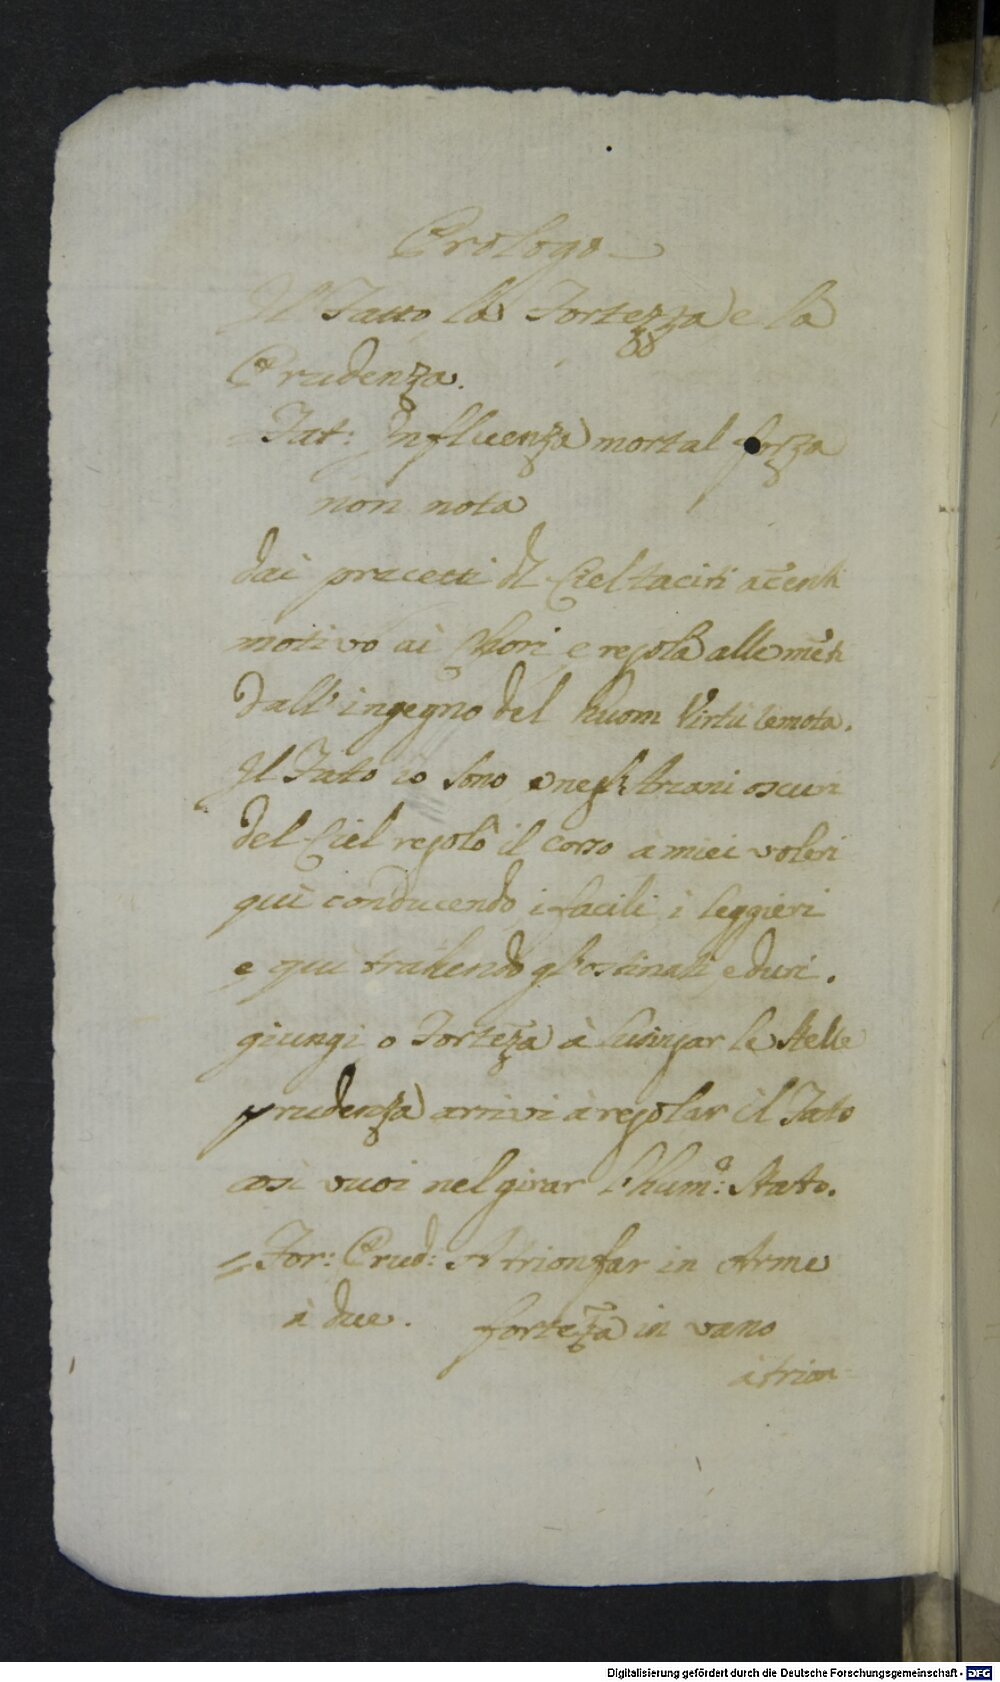 Prologo
Il Fatto la Fortezza e la
Prudenza.
Fat: Influenza mortal forza
non nota
dai precetti del Ciel taciti acenti
motivo ai Chori e regola alle mēti
Dall' ingegno del huom Virtù remota.
Il Fato io sono e negl'Arcani oscuri
del Ciel regolo il corso à miei voleri
qui conducendo i facili i leggieri
e qui trahendo gl'ostinati e duri.
giungi o Forteza à lusingar le stelle
prudenza arrivi à regolar il Fato
così vuoi nel girar l'hum.o: stato.
For: Prud: A trionfar in Arme
à due. forteza in vano
à trion
Digitalisierung gefördert durch die Deutsche Forschungsgemeinschaft - DFG